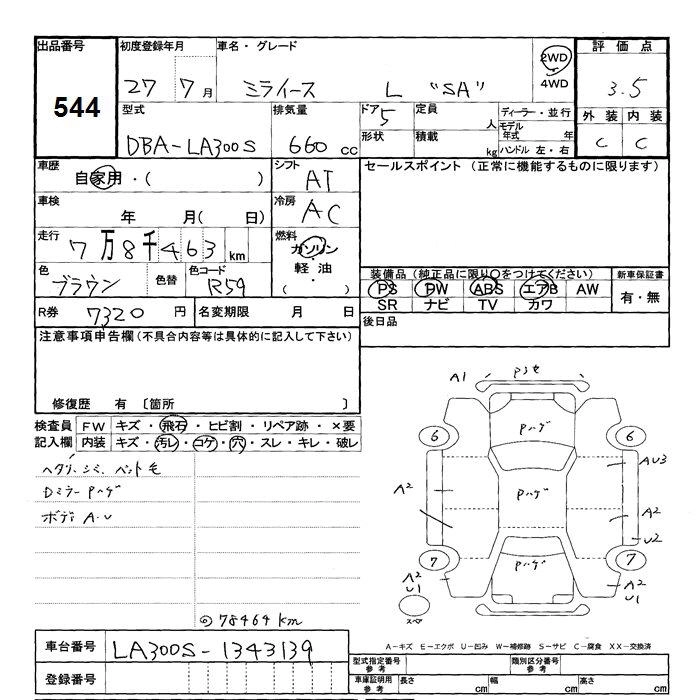 出品番号 初度登録年月 車名・グレード 2WD 4WD 評価点
544 27 7月 ミライース L "SA" 3.5
型式 排気量 ドア 定員 ディーラー・並行 外装 内装
DBA-LA300S 660 cc 5 人 モデル年式 年 C C
形状 積載 kg ハンドル 左・右
車歴 シフト セールスポイント (正常に機能するものに限ります)
自家用・( ) AT
車検 冷房
年 月( 日) AC
走行 燃料
7万8千463 km ガソリン・軽油・( )
色 色替 色コード 装備品 (純正品に限り○をつけてください) 新車保証書
ブラウン R59 PS PW ABS エアB AW 有・無
SR ナビ TV カワ
R券 7320 円 名変期限 月 日 後日品
注意事項申告欄 (不具合内容等は具体的に記入して下さい)
修復歴 有 〔箇所 〕
検査員 FW キズ・飛石・ヒビ割・リペア跡・×要
記入欄 内装 キズ・汚レ・コゲ・穴・スレ・キレ・破レ
ヘタリ、シミ、ペット毛
Dミラー Pハゲ
ボディ A.U
A1
6 Pハゲ 6
AU3
A2 Pハゲ A2
U2
7 Pハゲ 7
A2 U1 A2 U1
スペア
◎78464 km
車台番号 LA300S-1343139
A-キズ E-エクボ U-凹み W-補修跡 S-サビ C-腐食 XX-交換済
登録番号
型式指定番号 参考 類別区分番号 参考
車庫証明用 参考 長さ cm 幅 cm 高さ cm